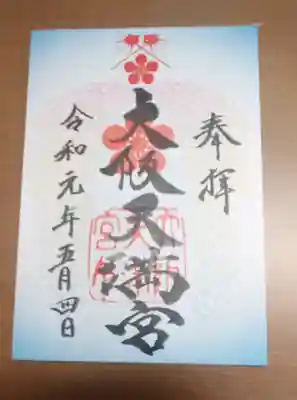 奉拝
大阪天満宮
令和元年五月四日